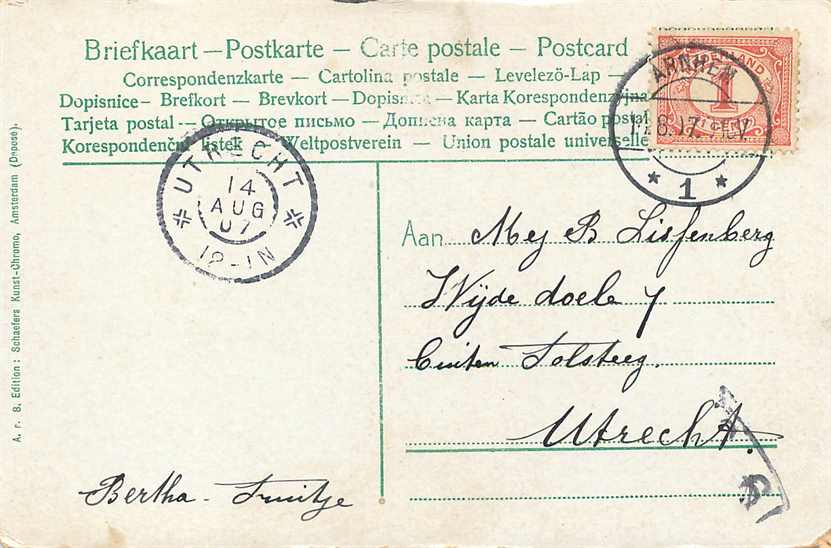 Briefkaart — Postkarte — Carte postale — Postcard
Correspondenzkarte — Cartolina postale — Levelezö-Lap —
Dopisnice — Brefkort — Brevkort — Dopisnica — Karta Korespondencyjna
Tarjeta postal — Открытое письмо — Дописна карта — Cartão postal
Korespondenční lístek Weltpostverein — Union postale universelle
ARNHEM
1
1
UTRECHT
14
AUG
07
12-1N
Aan Mej B Lisfenberg
Wijde doele 7
buiten Tolsteeg.
Utrecht.
Bertha - Truitje
A. r. 8. Edition: Schaefers Kunst-Chromo, Amsterdam (Déposé).